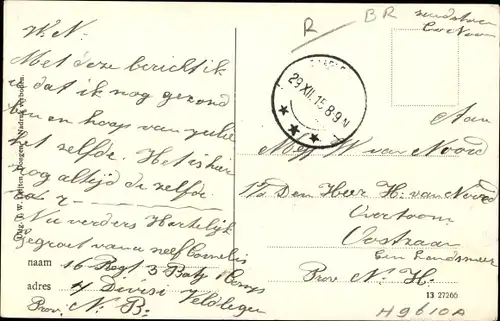 W. N.
Met deze bericht ik
u dat ik nog gezond
ben en hoop van julie
het zelfde. Het is hier
nog altijd de zelfde
Nu verders Hartelijk
gegroet van u neef Cornelis
naam 16 Regt 3 Batj 1 Comp
adres 4 Divisi Veldleger
Prov. N. B.
R
BR
29 XII 15 8-9 N
Aan
Mej W van Noord
p/a Den Heer H. van Noord
Overtoom
Oostzaan
Prov N. H.
13 27266
H9610A